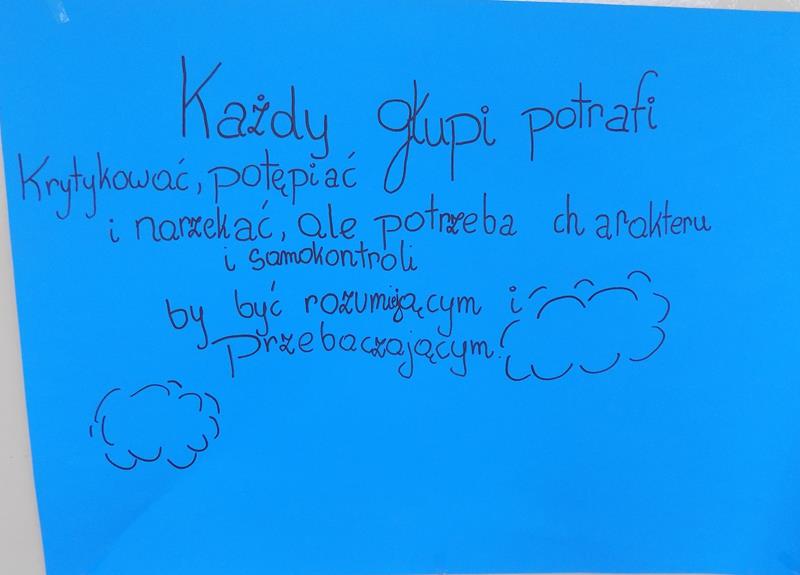 Każdy głupi potrafi
Krytykować, potępiać
i narzekać, ale potrzeba charakteru
i samokontroli
by być rozumiejącym i
przebaczającym.